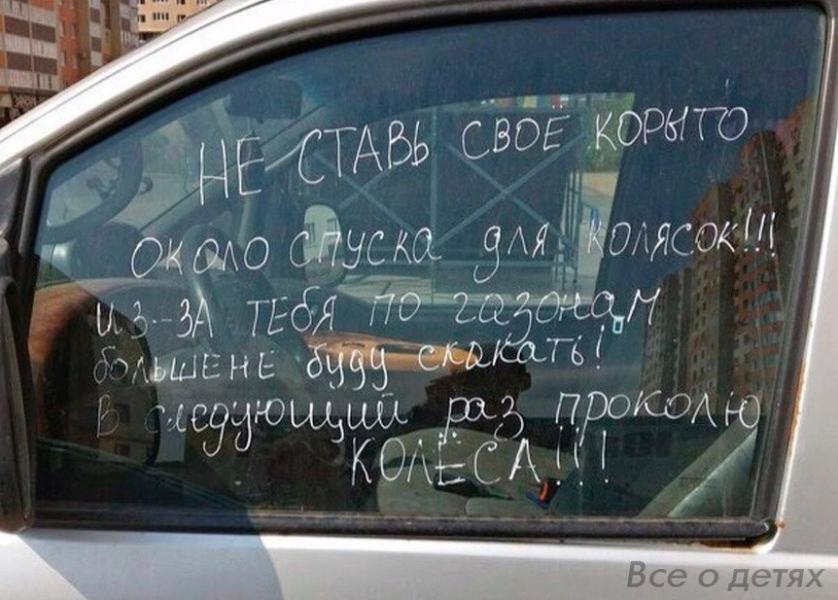 НЕ СТАВЬ СВОЁ КОРЫТО
ОКОЛО СПУСКА ДЛЯ КОЛЯСОК!!!
ИЗ-ЗА ТЕБЯ ПО ГАЗОНАМ
БОЛЬШЕ НЕ БУДУ СКАКАТЬ!
В СЛЕДУЮЩИЙ РАЗ ПРОКОЛЮ
КОЛЁСА!!!
Все о детях